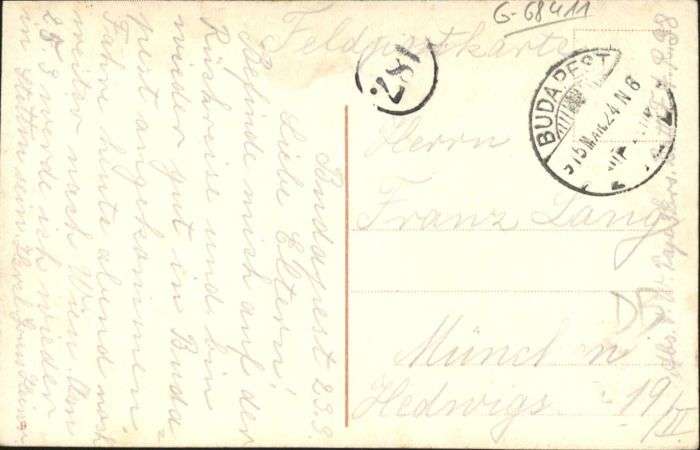 G-68411
Feldpostkarte
281
BUDAPEST
915 MAR. 24 N 8
Herrn
Franz Lang
München
Hedwigs - 19/III
D5
Budapest 23.3.
Liebe Eltern!
Befinde mich auf der
Rückreise und bin
wieder gut in Buda
pest angekommen.
Fahre heute abend noch
weiter nach Wien. Am
25.3 werde ich wieder
im